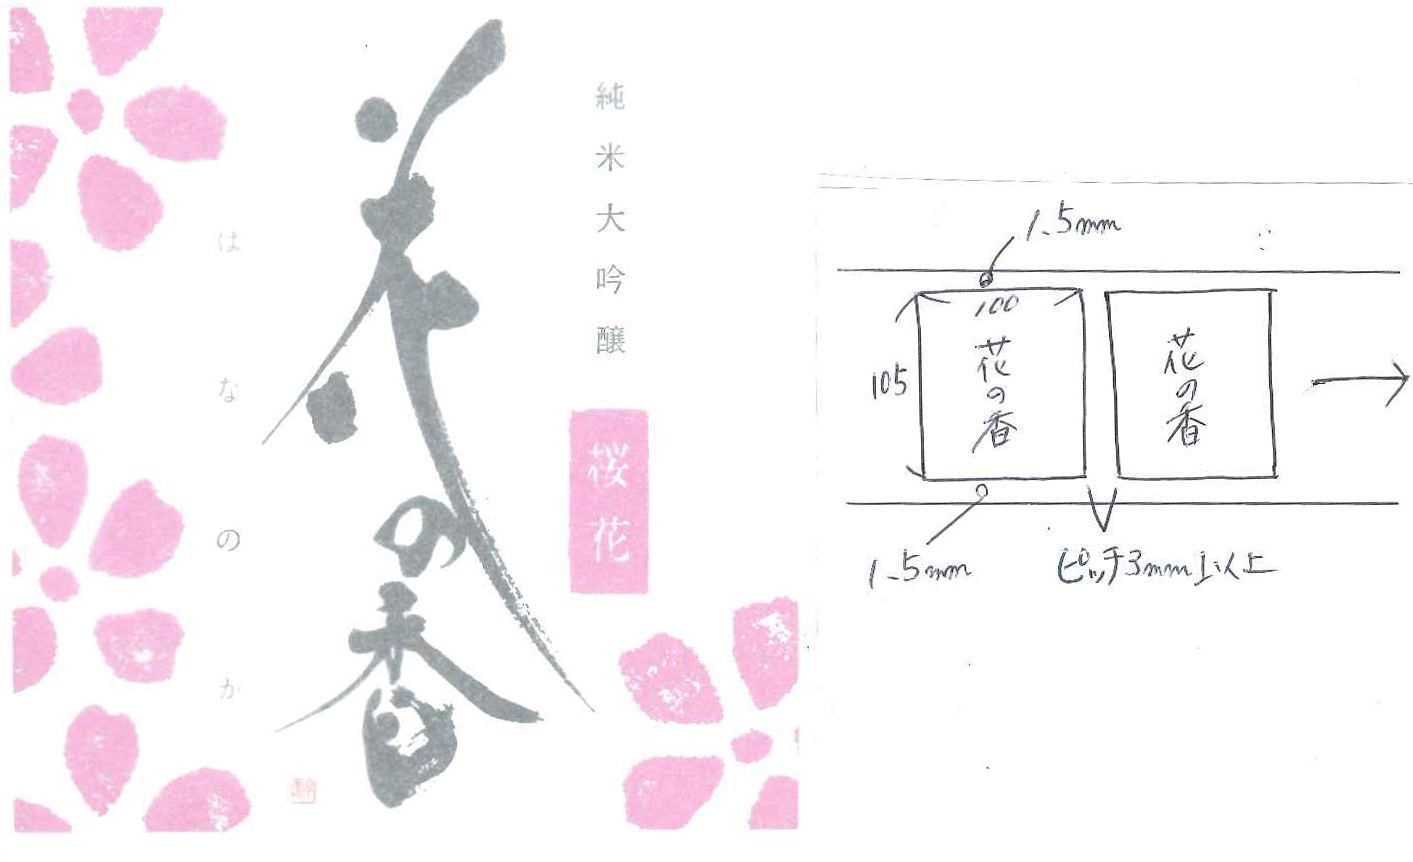 純米大吟醸
桜花
花の香
はなのか
1.5mm
100
105
花の香
花の香
1.5mm
ピッチ3mm以上